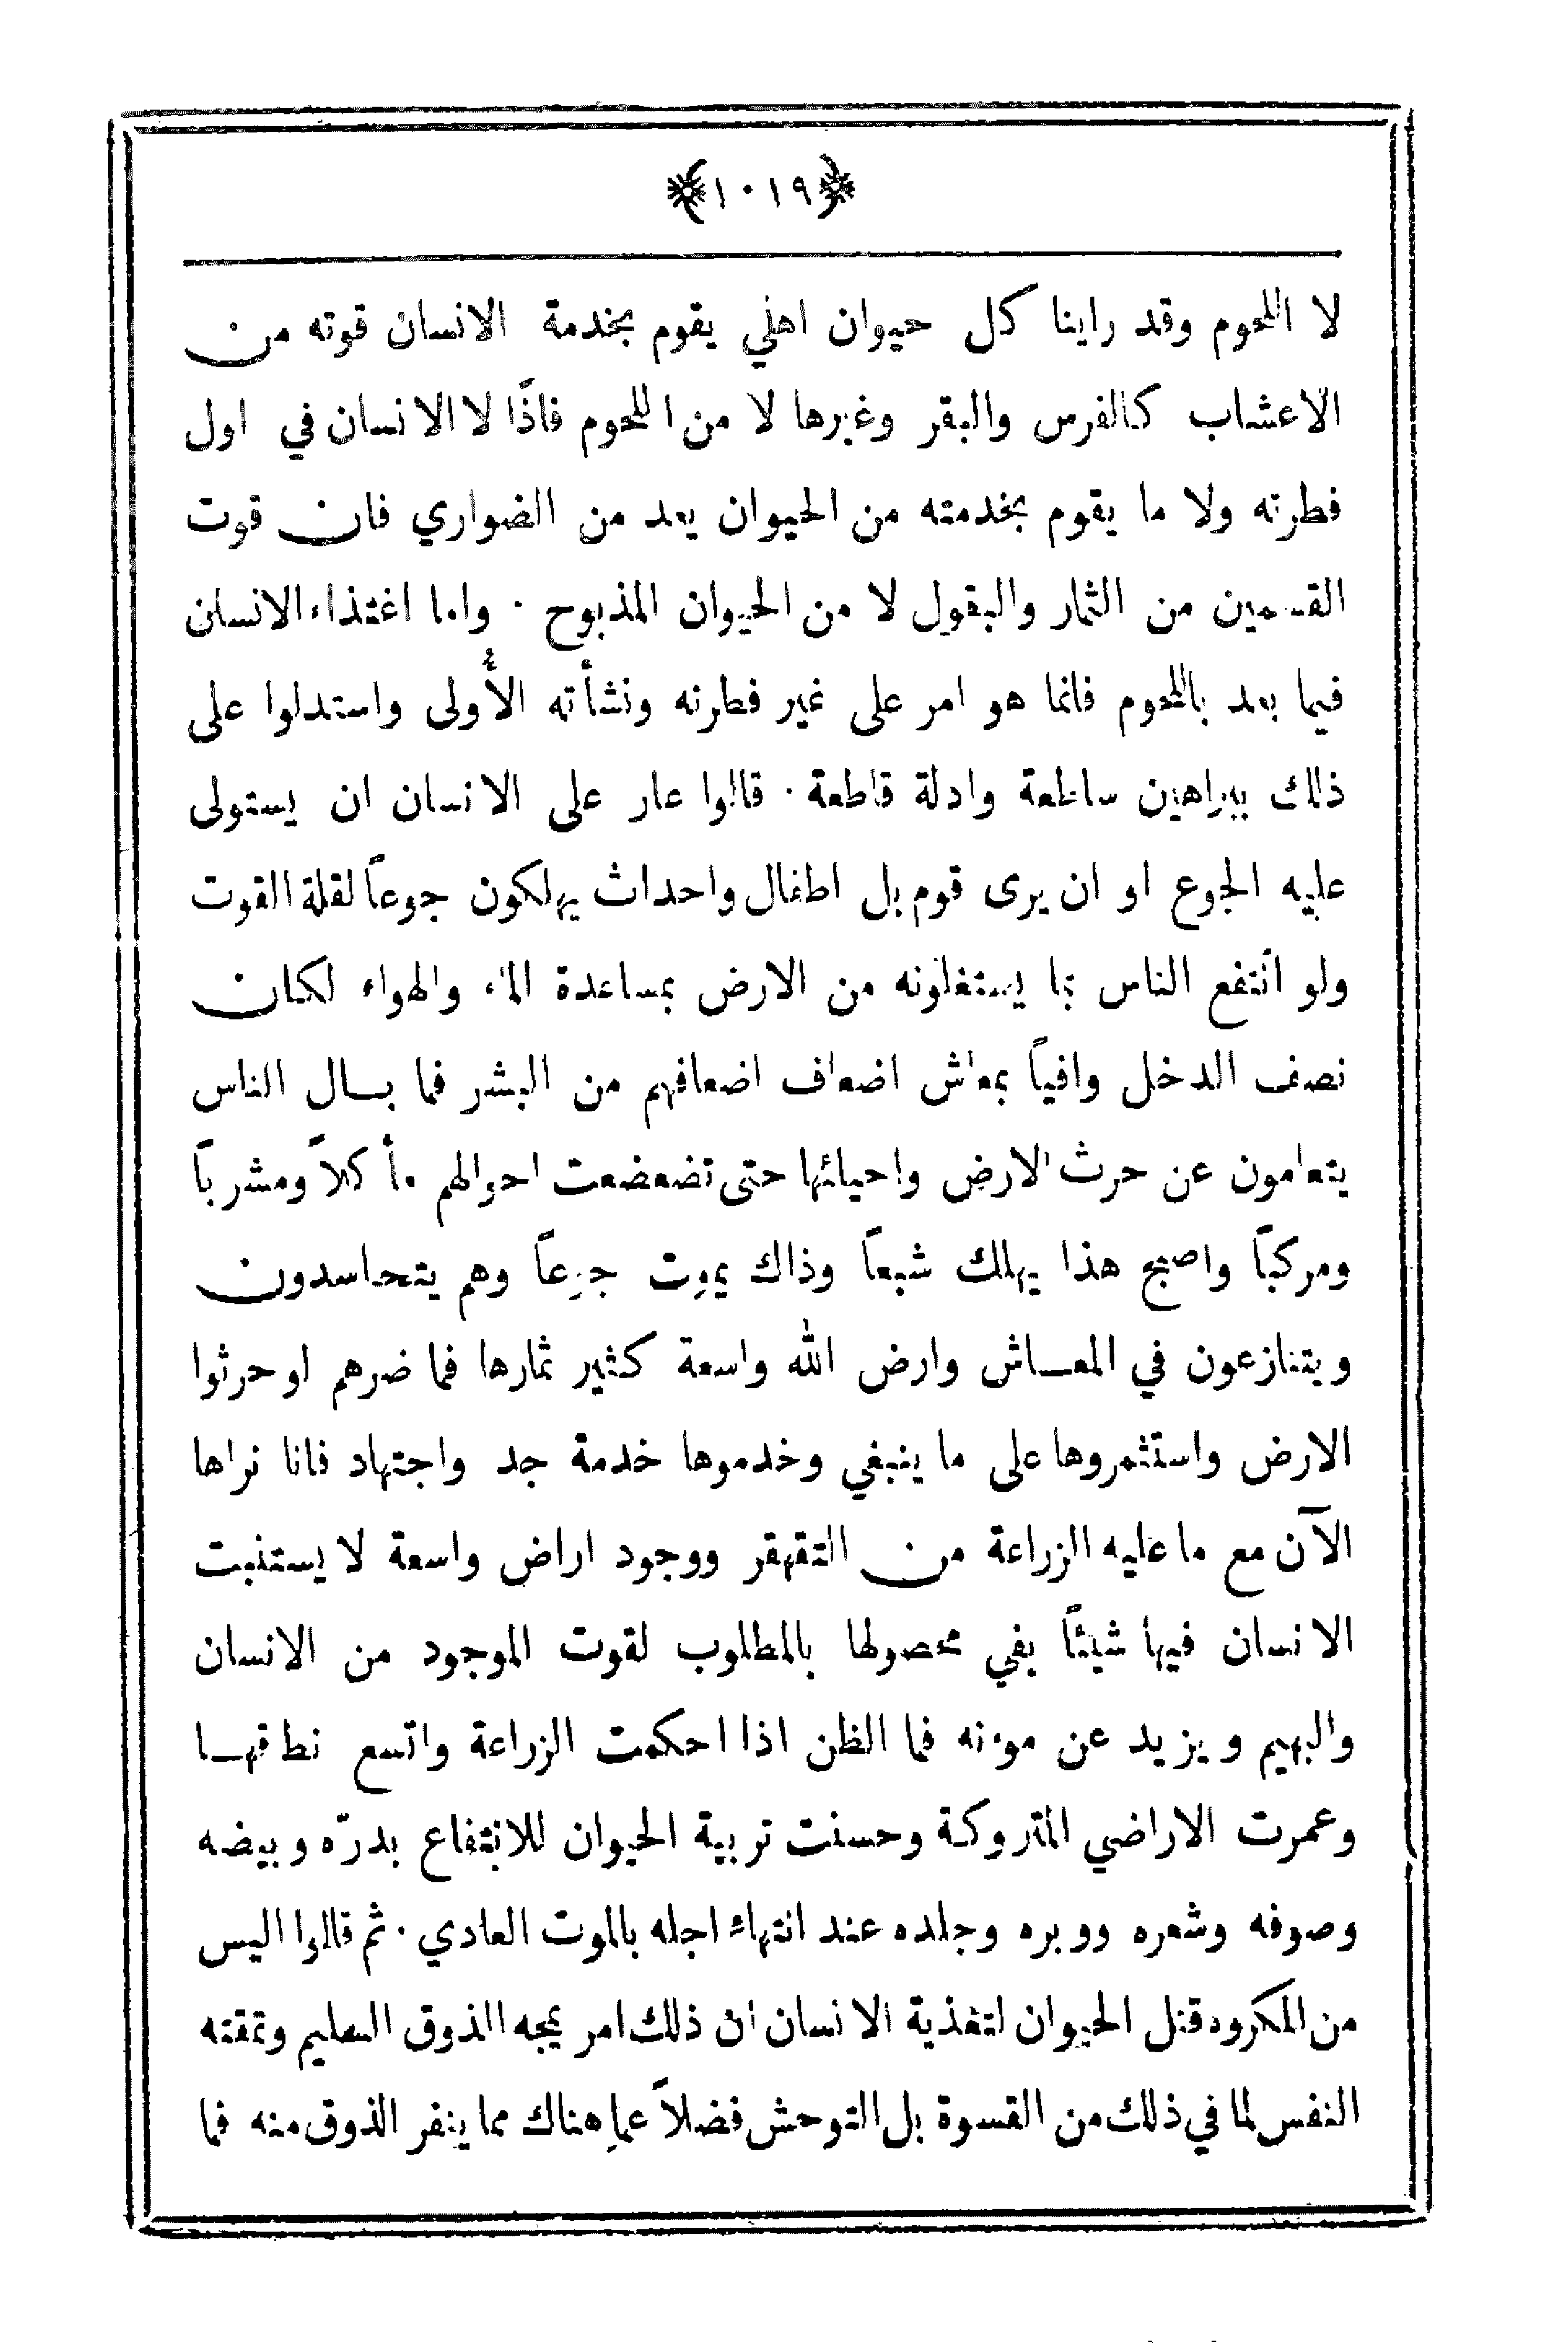 ﴿١٠١٩﴾
لا اللحوم وقد راينا كل حيوان اهلي يقوم بخدمة الانسان قوته من
الاعشاب كالفرس والبقر وغيرها لا من اللحوم فاذًا لا الانسان في اول
فطرته ولا ما يقوم بخدمته من الحيوان يعد من الضواري فان قوت
القسمين من الثمار والبقول لا من الحيوان المذبوح · واما اغتذاء الانسان
فيما بعد باللحوم فانما هو امر على غير فطرته ونشأته الأُولى واستدلوا على
ذلك ببراهين ساطعة وادلة قاطعة · قالوا عار على الانسان ان يستولى
عليه الجوع او ان يرى قوم بل اطفال واحداث يهلكون جوعاً لقلة القوت
ولو انتفع الناس بما يستغلونه من الارض بمساعدة الماء والهواء لكان
نصف الدخل وافياً بمعاش اضعاف اضعافهم من البشر فما بال الناس
يتعامون عن حرث الارض واحيائها حتى تضعضعت احوالهم مأكلاً ومشرباً
ومركباً واصبح هذا يهلك شبعاً وذاك يموت جوعاً وهم يتحاسدون
ويتنازعون في المعاش وارض الله واسعة كثير ثمارها فما ضرهم او حرثوا
الارض واستثمروها على ما ينبغي وخدموها خدمة جد واجتهاد فانا نراها
الآن مع ما عليه الزراعة من التقهقر ووجود اراض واسعة لا يستنبت
الانسان فيها شيئاً يفي محصولها بالمطلوب لقوت الموجود من الانسان
والبهيم ويزيد عن موءنه فما الظن اذا احكمت الزراعة واتسع نطاقها
وعمرت الاراضي المتروكة وحسنت تربية الحيوان للانتفاع بدرّه وبيضه
وصوفه وشعره ووبره وجلده عند انتهاء اجله بالموت العادي · ثم قالوا اليس
من المكروه قتل الحيوان لتغذية الانسان ان ذلك امر يمجه الذوق السليم وتمقته
النفس لما في ذلك من القسوة بل التوحش فضلاً عما هناك مما ينفر الذوق منه فما